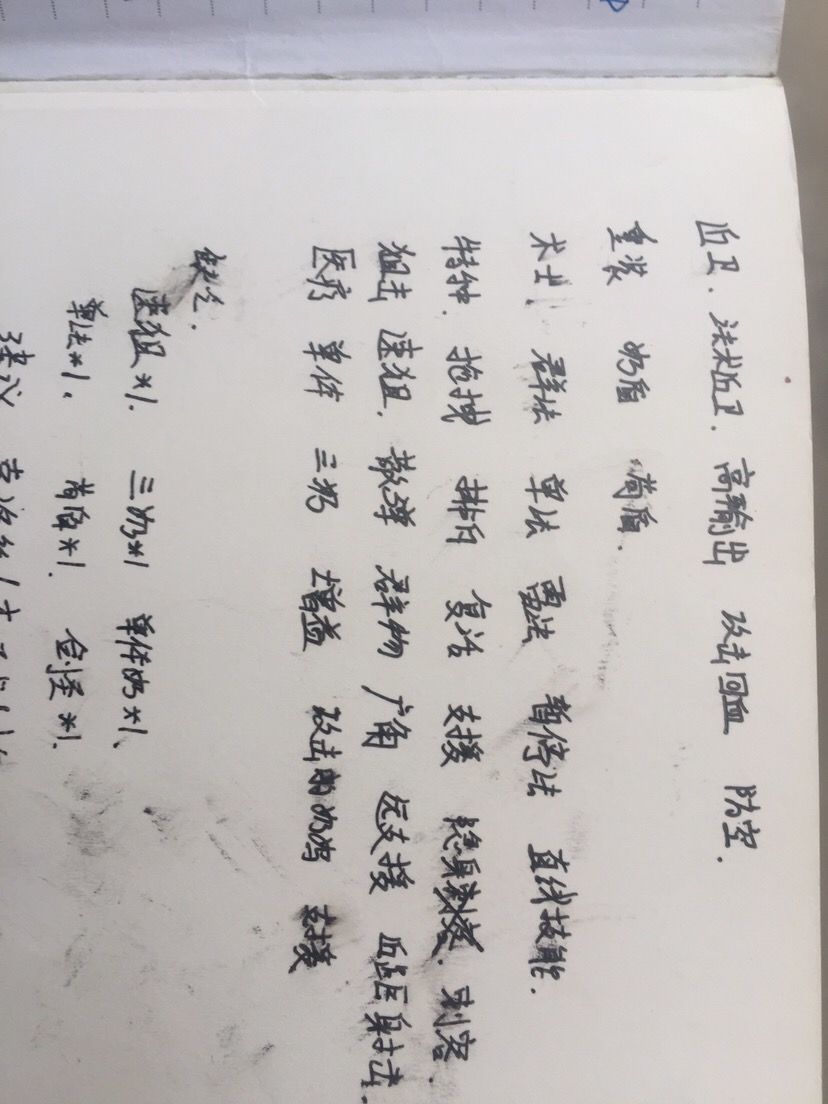 近卫. 法术近卫. 高输出 攻击回血 防空.
重装 奶盾 荀盾.
术士. 群法 单法 酉法 暂停法 直线技能.
特种. 拖拽 推拉 复活 支援 隐身 刺客.
狙击 速狙. 散弹 群物 广角 远支援 近距射击.
医疗 单体 三奶 增益 攻击的奶妈 支援
缺少.
速狙*1. 三奶*1 单体奶*1、
单法*1. 盾*1. 剑圣*1.